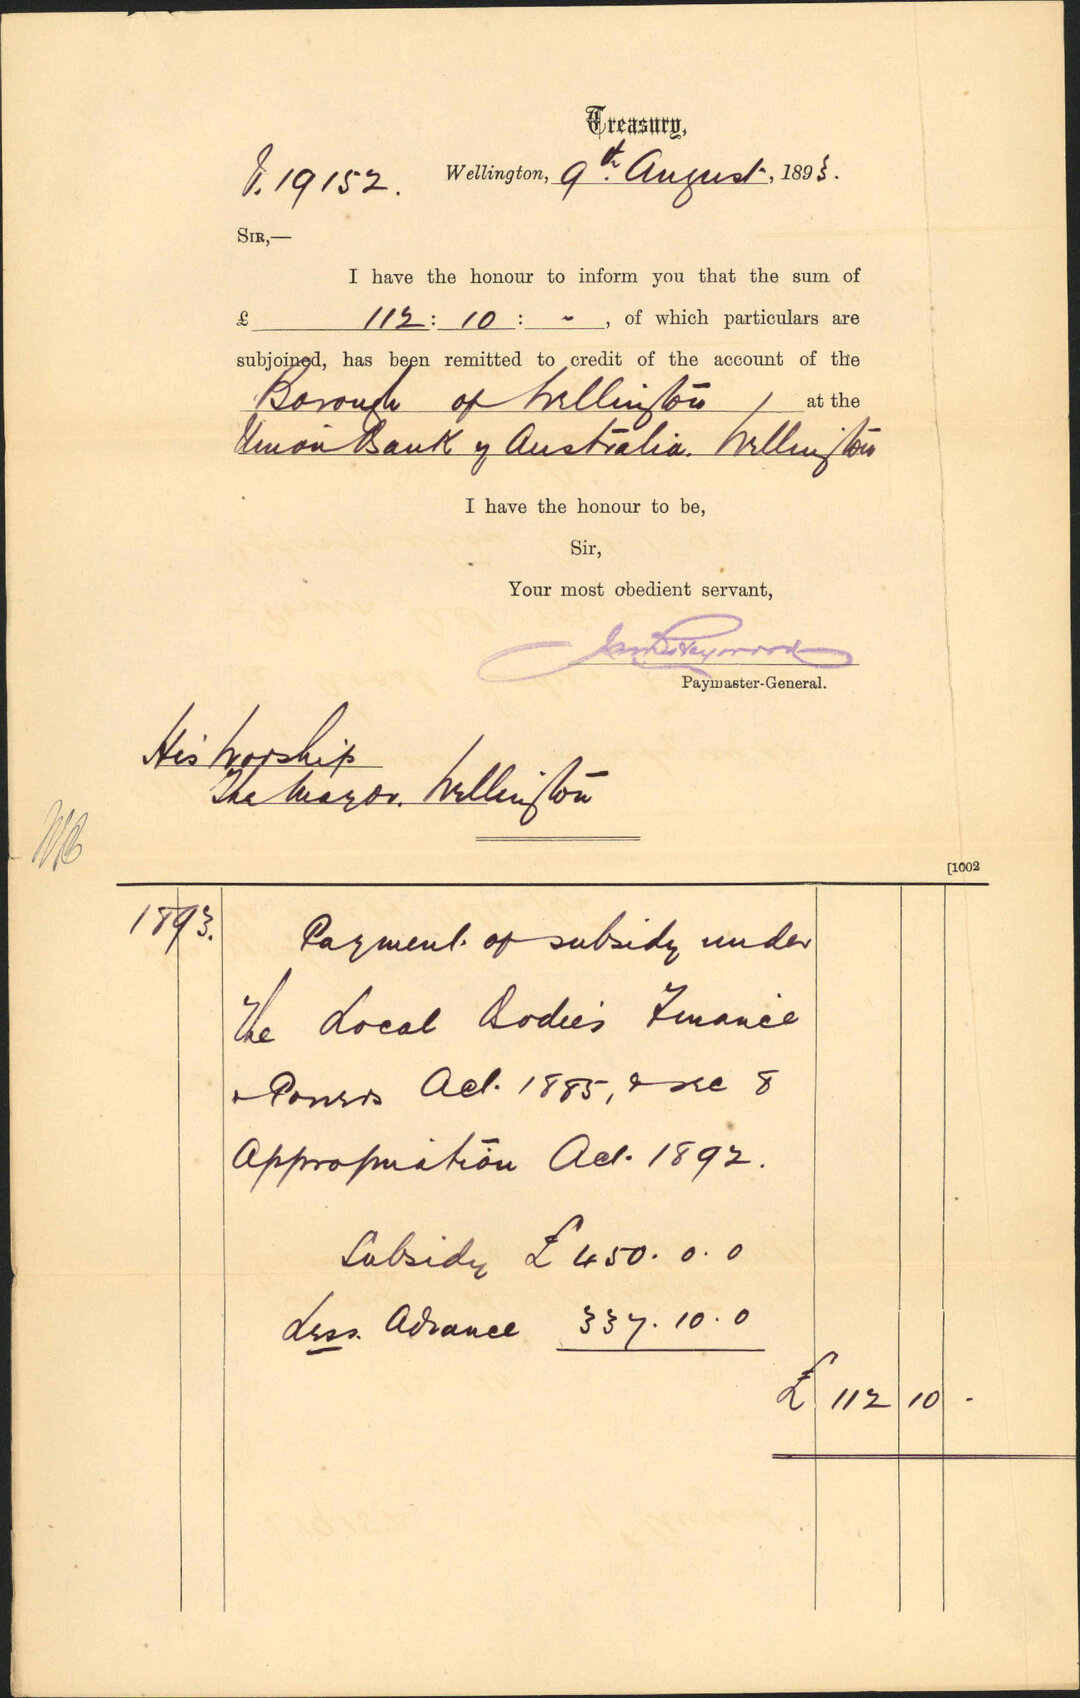 Treasury,
V. 19152. Wellington, 9th. August, 1893.
SIR,—
I have the honour to inform you that the sum of
£ 112 : 10 : - , of which particulars are
subjoined, has been remitted to credit of the account of the
Borough of Wellington, at the
Union Bank of Australia. Wellington
I have the honour to be,
Sir,
Your most obedient servant,
Jas B Heywood
Paymaster-General.
His Worship
The Mayor. Wellington
[1002
1893. Payment of subsidy under
The Local Bodies Finance
& Powers Act. 1885, & sec 8
Appropriation Act. 1892.
Subsidy £ 450. 0. 0
Less. Advance 337. 10. 0
£ 112 10 -